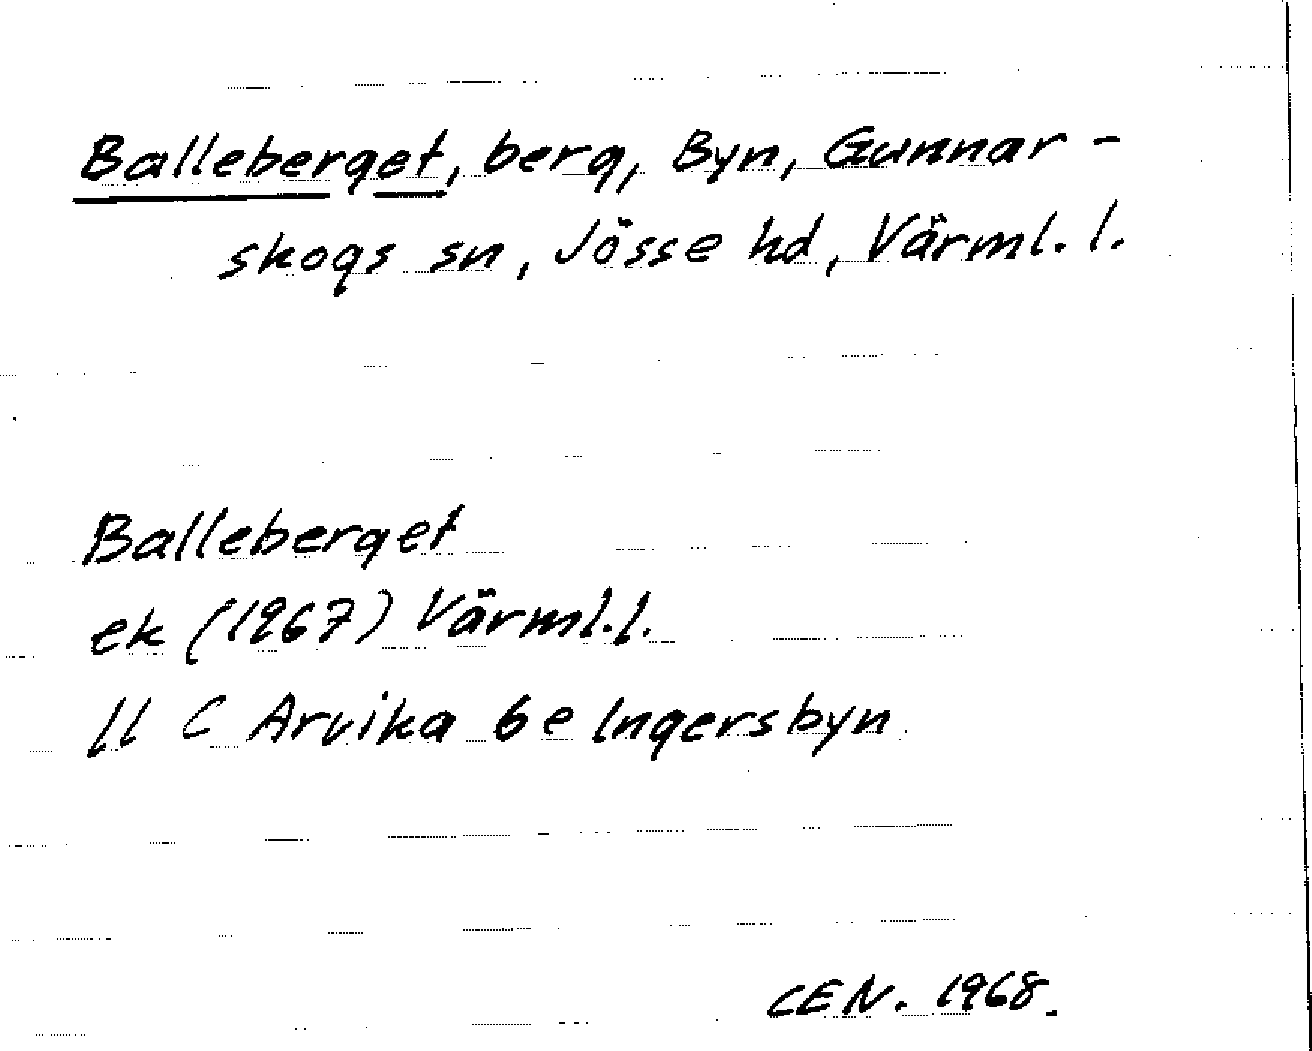 Balleberget, berg, Byn, Gunnar-
skogs sn, Jösse hd, Värml. l.
Balleberget
ek (1967) Värml.l.
11 C Arvika 6e Ingersbyn
CEN. 1968.